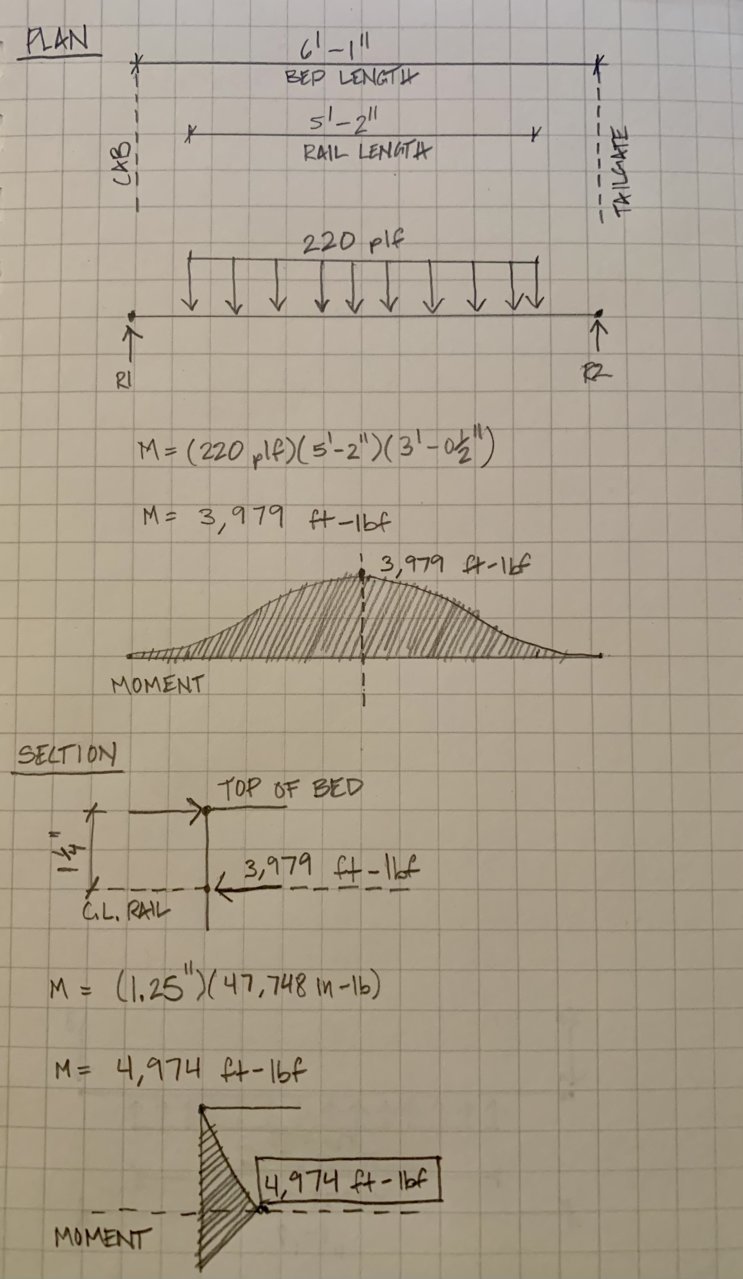 PLAN
6'-1"
BED LENGTH
5'-2"
RAIL LENGTH
CAB
TAILGATE
220 plf
R1
R2
M = (220 plf)(5'-2")(3'-0½")
M = 3,979 ft-lbf
3,979 ft-lbf
MOMENT
SECTION
TOP OF BED
1¼"
3,979 ft-lbf
C.L. RAIL
M = (1.25")(47,748 in-lb)
M = 4,974 ft-lbf
4,974 ft-lbf
MOMENT